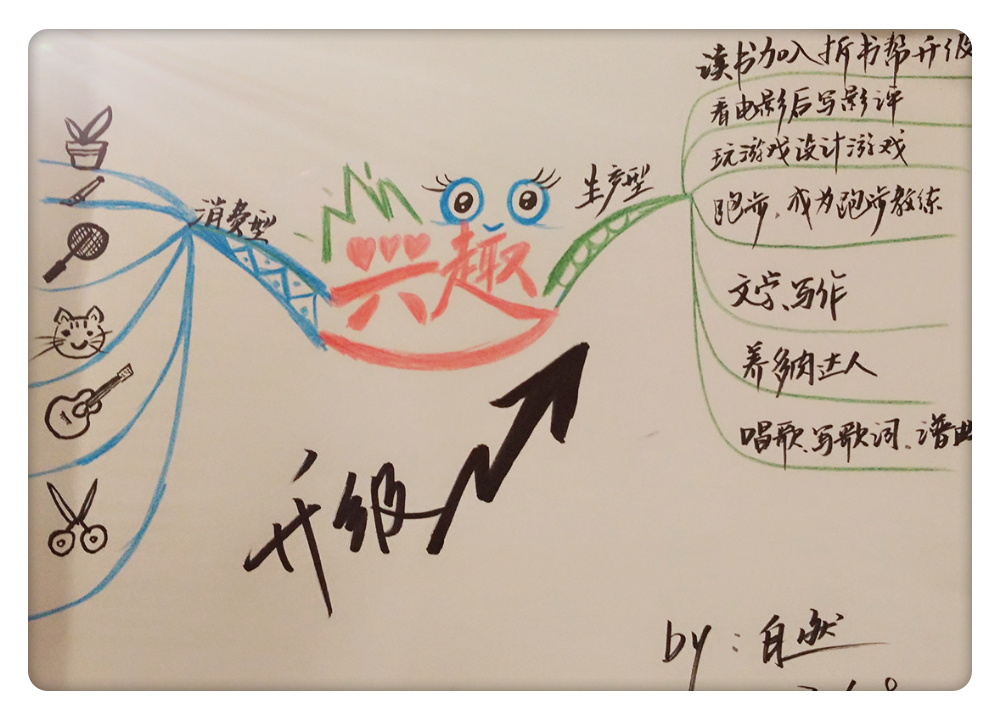 读书加入拆书帮升级
看电影后写影评
玩游戏设计游戏
跑步,成为跑步教练
文学、写作
养多肉达人
唱歌、写歌词、谱曲
生产型
消费型
Min
兴趣
升级
by:自然